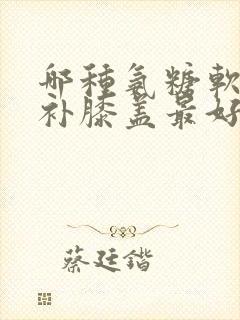 哪種氨糖軟
补膝盖最好
蔡廷鍇